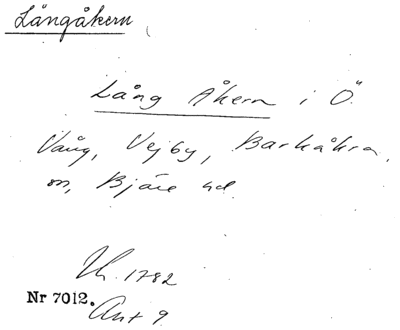 Långåkern
Lång Åkern i Ö.
Vång, Vejby, Barkåkra,
sn, Bjäre hd.
Uh. 1782
Nr 7012.
Akt 9.